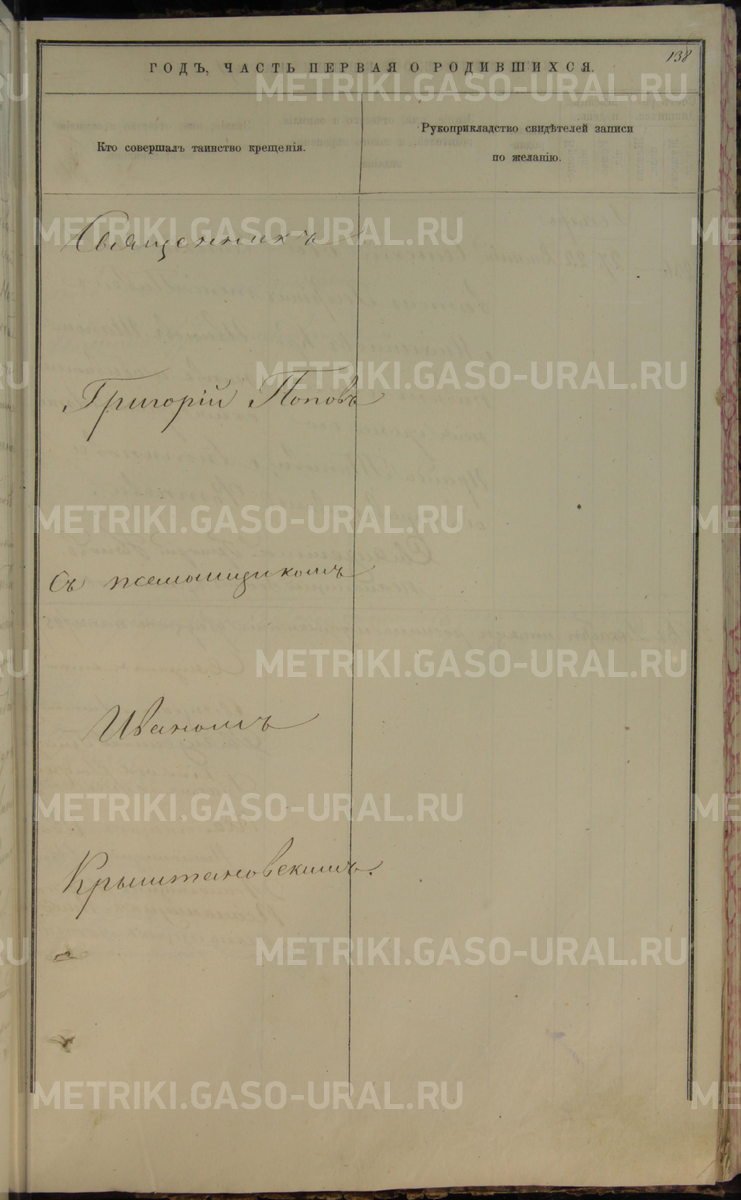 138
ГОДЪ, ЧАСТЬ ПЕРВАЯ О РОДИВШИХСЯ.
Кто совершалъ таинство крещенія.
Рукоприкладство свидѣтелей записи
по желанію.
Священникъ
Григорій Поповъ
съ псаломщикомъ
Иваномъ
Крыштановскимъ.
METRIKI.GASO-URAL.RU
METRIKI.GASO-URAL.RU
METRIKI.GASO-URAL.RU
METRIKI.GASO-URAL.RU
METRIKI.GASO-URAL.RU
METRIKI.GASO-URAL.RU
METRIKI.GASO-URAL.RU
METRIKI.GASO-URAL.RU